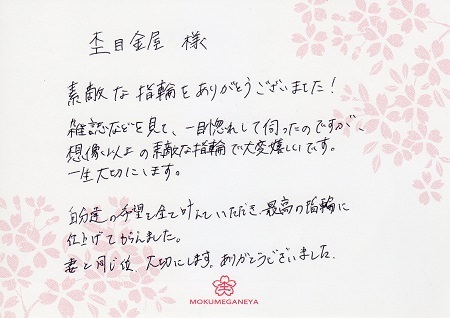 杢目金屋 様
素敵な指輪をありがとうございました!
雑誌などを見て、一目惚れして伺ったのですが、
想像以上の素敵な指輪で大変嬉しいです。
一生大切にします。
自分達の希望を全て叶えていただき、最高の指輪に
仕上げてもらえました。
妻と同じ位、大切にします。ありがとうございました。
MOKUMEGANEYA